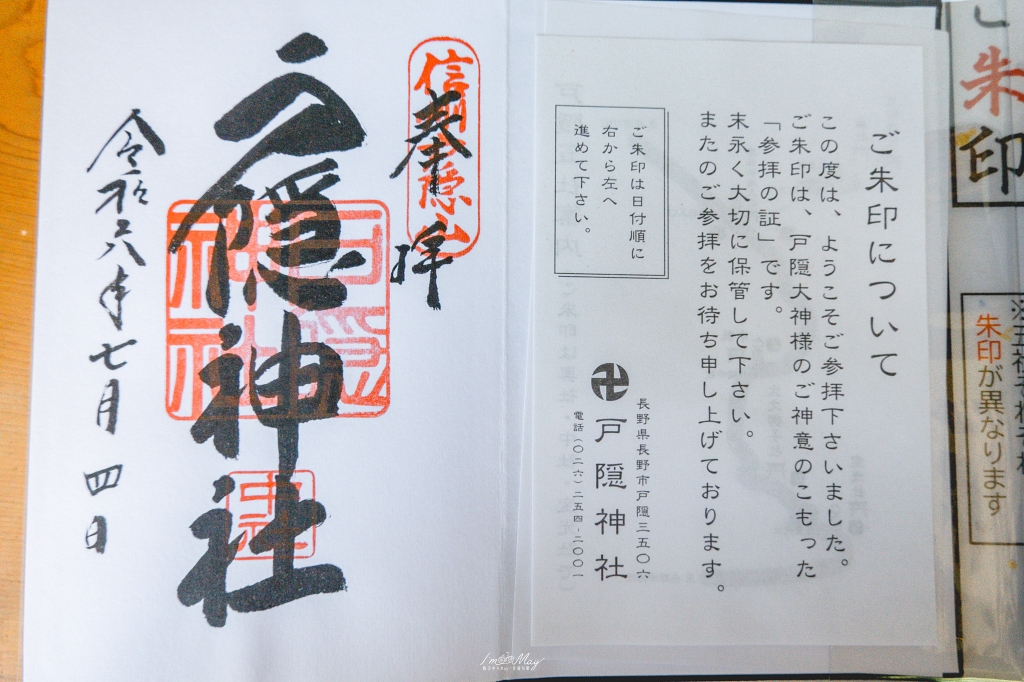 朱印
朱印が異なります
ご朱印について
この度は、ようこそご参拝下さいました。
ご朱印は、戸隠大神様のご神意のこもった
「参拝の証」です。
末永く大切に保管して下さい。
またのご参拝をお待ち申し上げております。
ご朱印は日付順に
右から左へ
進めて下さい。
長野県長野市戸隠三五〇六
卍戸隠神社
電話(〇二六)二五四-二〇〇一
信州戸隠山
奉拝
戸隠神社
戸隠神社
中社
令和六年七月四日
I'm May